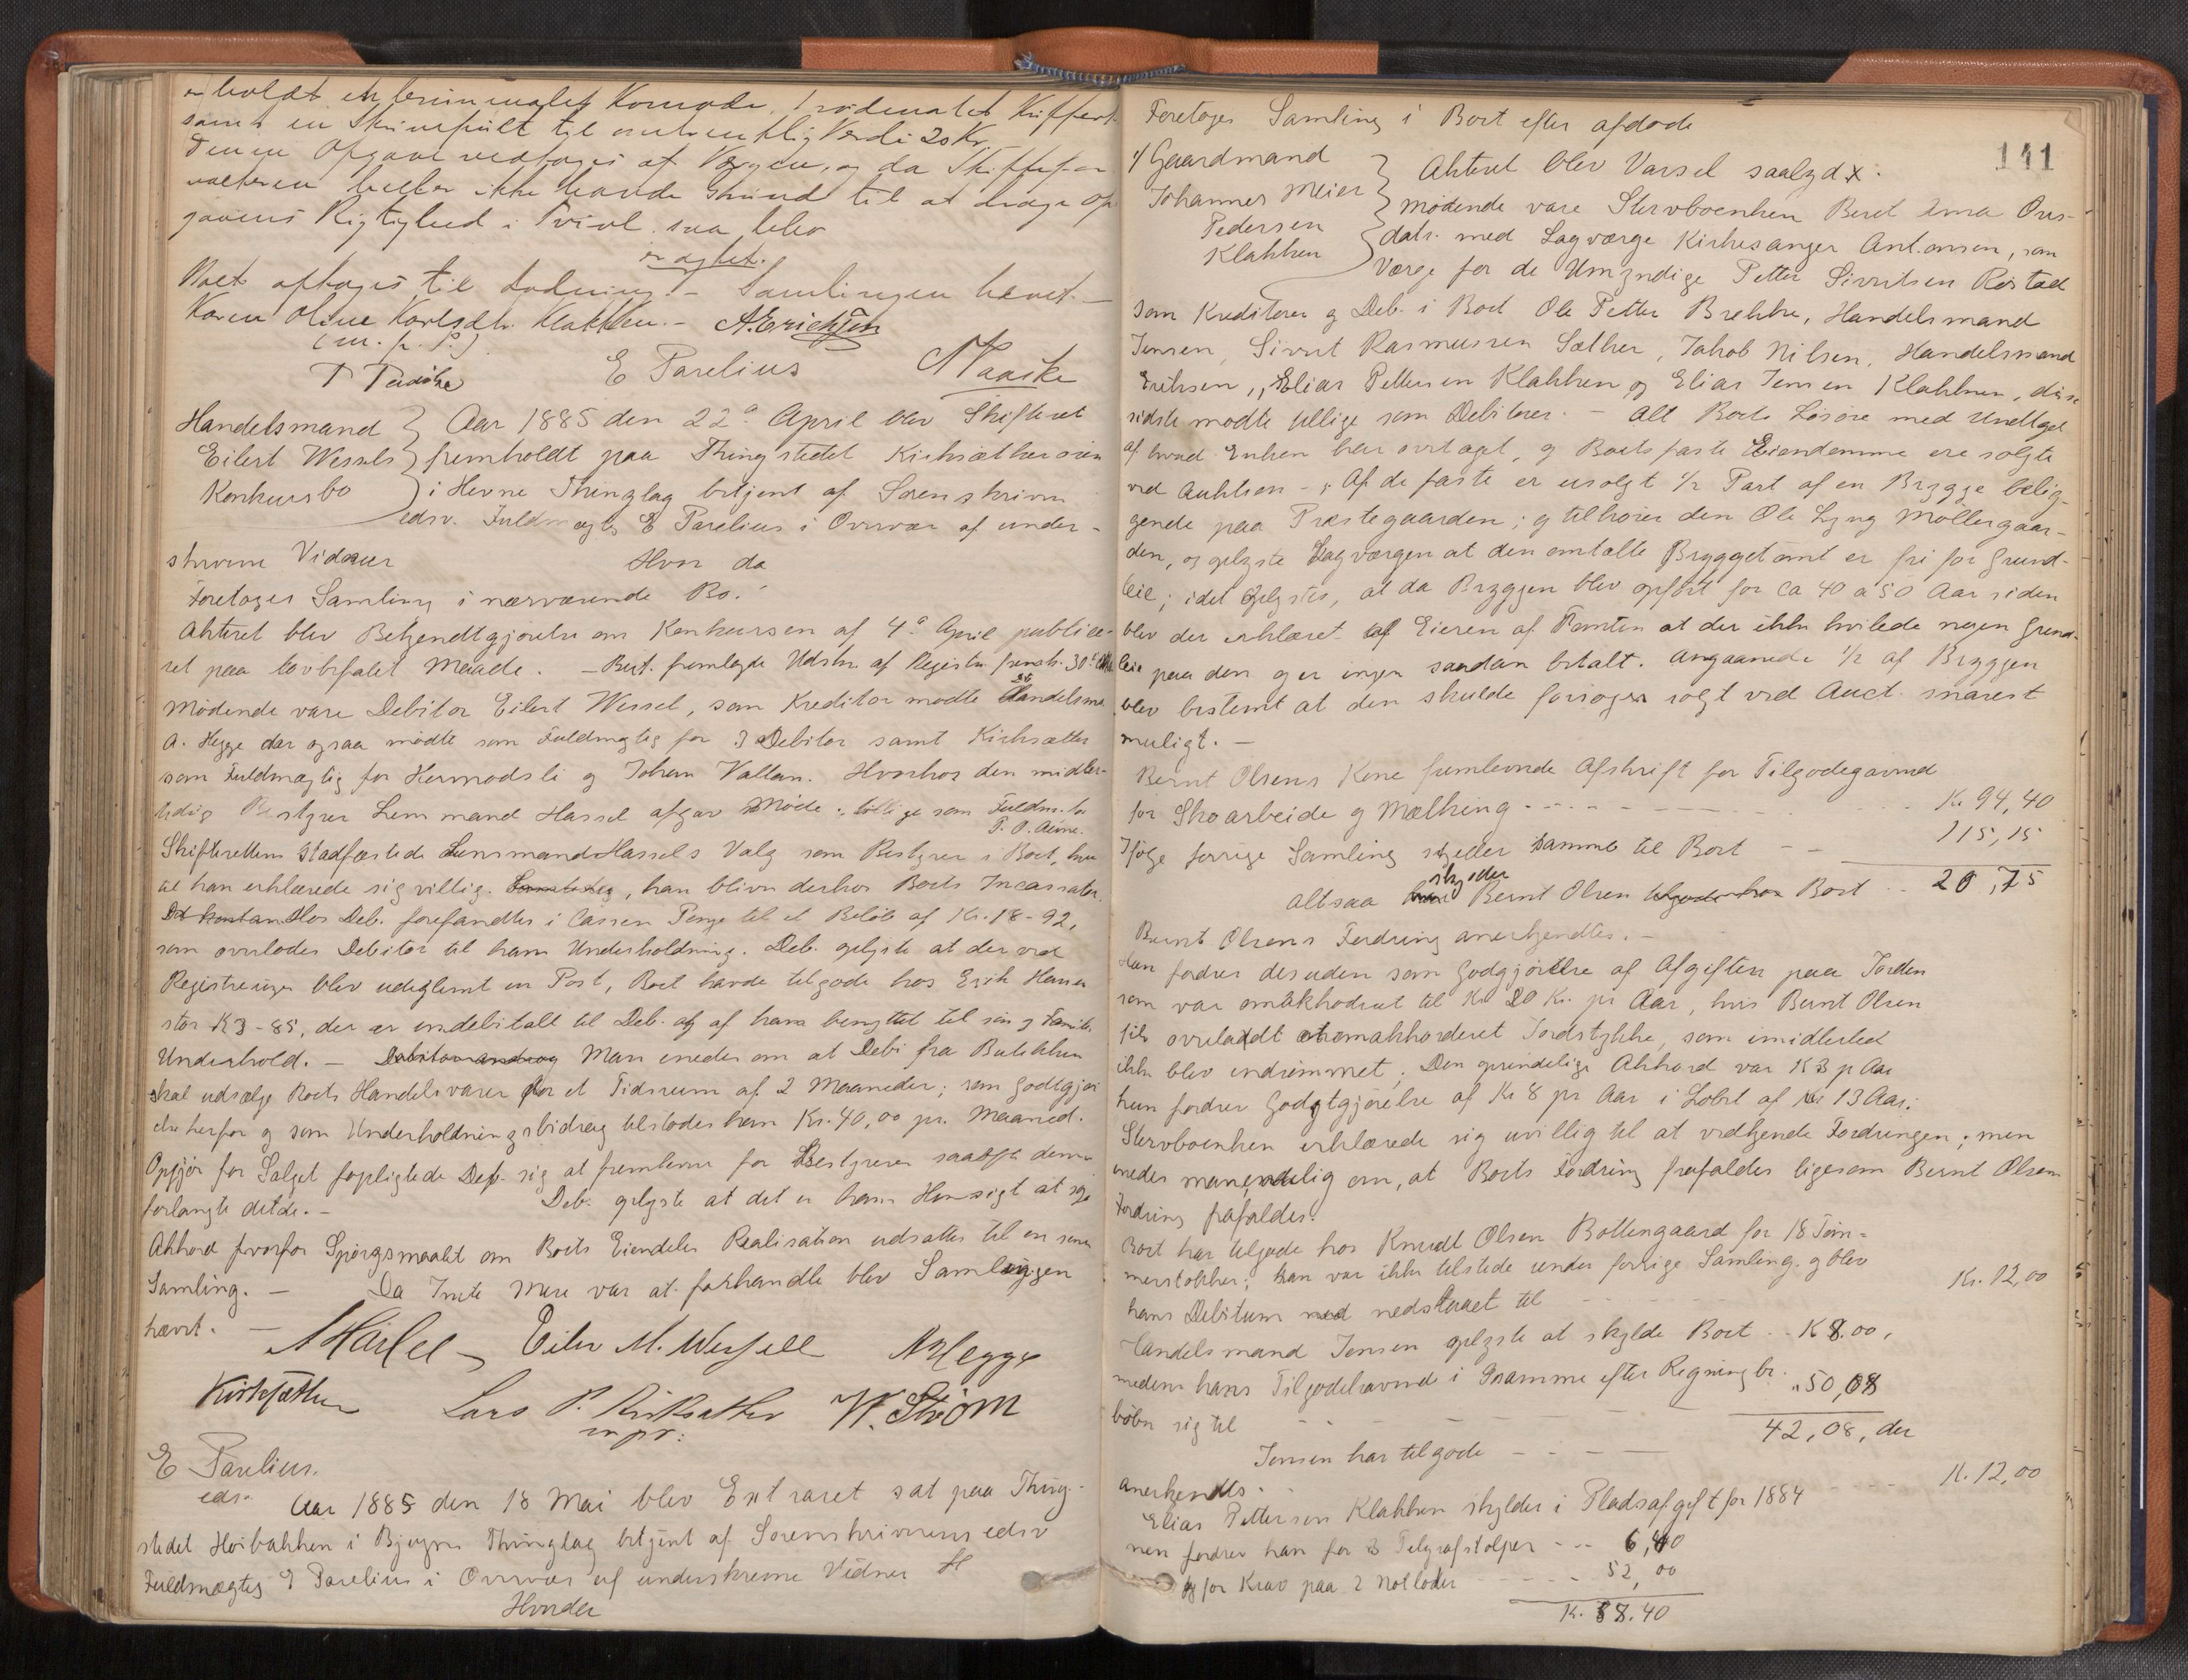 erholdt en brunmalet Komode, 1 rødmalet Kuffert
samt en Skindfeld til omtrentlig Verdi 20 Kr.
Denne Opgave vedtoges af Værgen, og da Skiftefor-
valteren heller ikke havde Grund til at drage Op-
gavens Rigtighed i Tvivl saa blev
eragtet.
Boet optages til Lodning. – Samlingen hævet. –
Karen Oline Karlsdtr. Klakken. – A. Erichsen
(m. p. P.)
E Parelius
Handelsmand } Aar 1885 den 22d April blev Skifteret
Eilert Wessels } fremholdt paa Thingstedet Kirksætherøren
Konkursbo } i Hevne Thinglag betjent af Sorenskriver
edsv. Fuldmægtig E Parelius i Overvær af under-
skrevne Vidner Hvor da
Foretoges Samling i nærværende Bo.
Akteret blev Bekjendtgjørelse om Konkursen af 4d April publice-
ret paa lovbefalet Maade. – Best. fremlagde Udskr. af Registr. fremh. 30
Mødende vare Debitor Eilert Wessel, som Kreditor mødte Handelsmd
A. Hegge der ogsaa mødte som Fuldmægtig for 3 Debitor samt Kirksæther
som Fuldmægtig for Hermodsli og Johan Vallan. Hvorhos den midler-
tidig Bestyrer Lensmand Hassel afgav Møde, tillige som Fuldm. for
P. O. Aune.
Skifteretten stadfæstede Lensmand Hassels Valg som Bestyrer i Boet, hvor
til han erklærede sig villig. , han bliver derhos Boets Incassator.
Hos Deb. forefandtes i Cassen Penge til et Beløb af Kr. 18-92,
som overlodes Debitor til hans Underholdning. Deb. oplyste at der ved
Registreringen blev udeglemt en Post, Boet havde tilgode hos Erik Hansen
stor K 3-85, der er indebetalt til Deb. og af ham benyttet til sin og Familes
Underhold. – Debitor androg Man enedes om at Deb. fra Butikken
skal udsælge Boets Handelsvarer for et Tidsrum af 2 Maaneder; som Godtgjør-
else herfor og som Underholdningsbidrag tilstodes ham Kr. 40,00 pr. Maaned.
Opgjør for Salget forpligtede Deb. sig at fremkomme for Bestyreren saaofte denne
forlangte dette. – Deb. oplyste at det er hans Hensigt at søge
Akkord hvorfor Spørgsmaalet om Boets Eiendeles Realisation udsattes til en senere
Samling. – Da Intet mere var at forhandle blev Samlingen
hævet. –
AHassel Eiler M. Wessell AHegge
Kirksæther Lars P. Kirksæther W. Strøm
m. p. P.
E Parelius.
edsv. Aar 1885 den 18 Mai blev Extraret sat paa Thing-
stedet Høibakken i Bjugn Thinglag betjent af Sorenskriverens edsv
Fuldmægtig E Parelius i Overvær af underskrevne Vidner
Hvorder
141
Foretoges Samling i Boet efter afdøde
1/ Gaardmand } Akteret blev Varsel saalydx.
Johannes Meier } Mødende vare Stervboenken Beret Anna Ons-
Pedersen } datr. med Lagværge Kirkesanger Antonsen, som
Klakken } Værge for de Umyndige Petter Sivertsen Røstad
som Kreditorer og Deb. i Boet Ole Petter Brekke, Handelsmand
Jensen, Sivert Rasmussen Sæther, Jakob Nilsen, Handelsmand
Eriksen, Elias Pettersen Klakken og Elias Jensen Klakken, disse
sidste mødte tillige som Debitorer. – Alt Boets Løsøre med Undtagelse
af hvad Enken har overtaget, og Boets faste Eiendomme ere solgte
ved Auktion –; Af de faste er usolgt 1/2 Part af en Brygge belig-
gende paa Præstegaarden; og tilhører den Ole Lyng Møllergaar-
den, og oplyste Lagværgen at den omtalte Bryggetomt er fri for Grund-
leie; idet oplystes, at da Bryggen blev opført for ca 40 a 50 Aar siden
blev der erklæret af Eieren af Tomten at der ikke hvilede nogen Grund-
leie paa den og er ingen saadan betalt. Angaaende 1/2 af Bryggen
blev bestemt at den skulde forsøges solgt ved Auct. snarest
muligt. –
Bernt Olsens Kone fremlevnde Afskrift for Tilgodegavnd
for Skoarbeide og Mælking - - - Kr 94,40
Ifølge forrige Samling skylder samme til Boet - - 115,15
altsaa skylder Bernt Olsen Boet - 20,75
Bernt Olsens Fordring anerkjendtes. –
Han fordrer desuden som Godgjørelse af Afgiften paa Jorden
som var omakkorderet til Kr 20 Kr. pr Aar, hvis Bernt Olsen
fik overladt omakkorderet Jordstykke, som imidlertid
ikke blev indrømmet; Den oprindelige Akkord var K 8 p Aar
hun fordrer Godgtgjørelse af Kr 8 pr Aar i Løbet af 13 Aar.
Stervboenken erklærede sig uvillig til at vedkjende Fordringen; men
enedes man endelig om, at Boets Fordring frafaldes ligesom Bernt Olsens
Fordring frafaldes.
Boet har tilgode hos Knudt Olsen Bottengaard for 18 Tøm-
merstokker; han var ikke tilstede under forrige Samling, og blev
hans Debitum nedsttaaet til - - - Kr. 12,00
Handelsmand Jensen oplyste at skylde Boet - K 8.00,
medens hans Tilgodehavende i Samme efter Regning be-
løber sig til - - - „50,08
Jensen har tilgode - - - 42,08, der
anerkjendtes.
Elias Pettersen Klakken skylder i Pladsafgift for 1884 - - - K. 12,00
men fordrer han for 3 Telegrafstolper - - - 6,40
og for Krav paa 2 Notloder - - - 52,00
K. 58.40